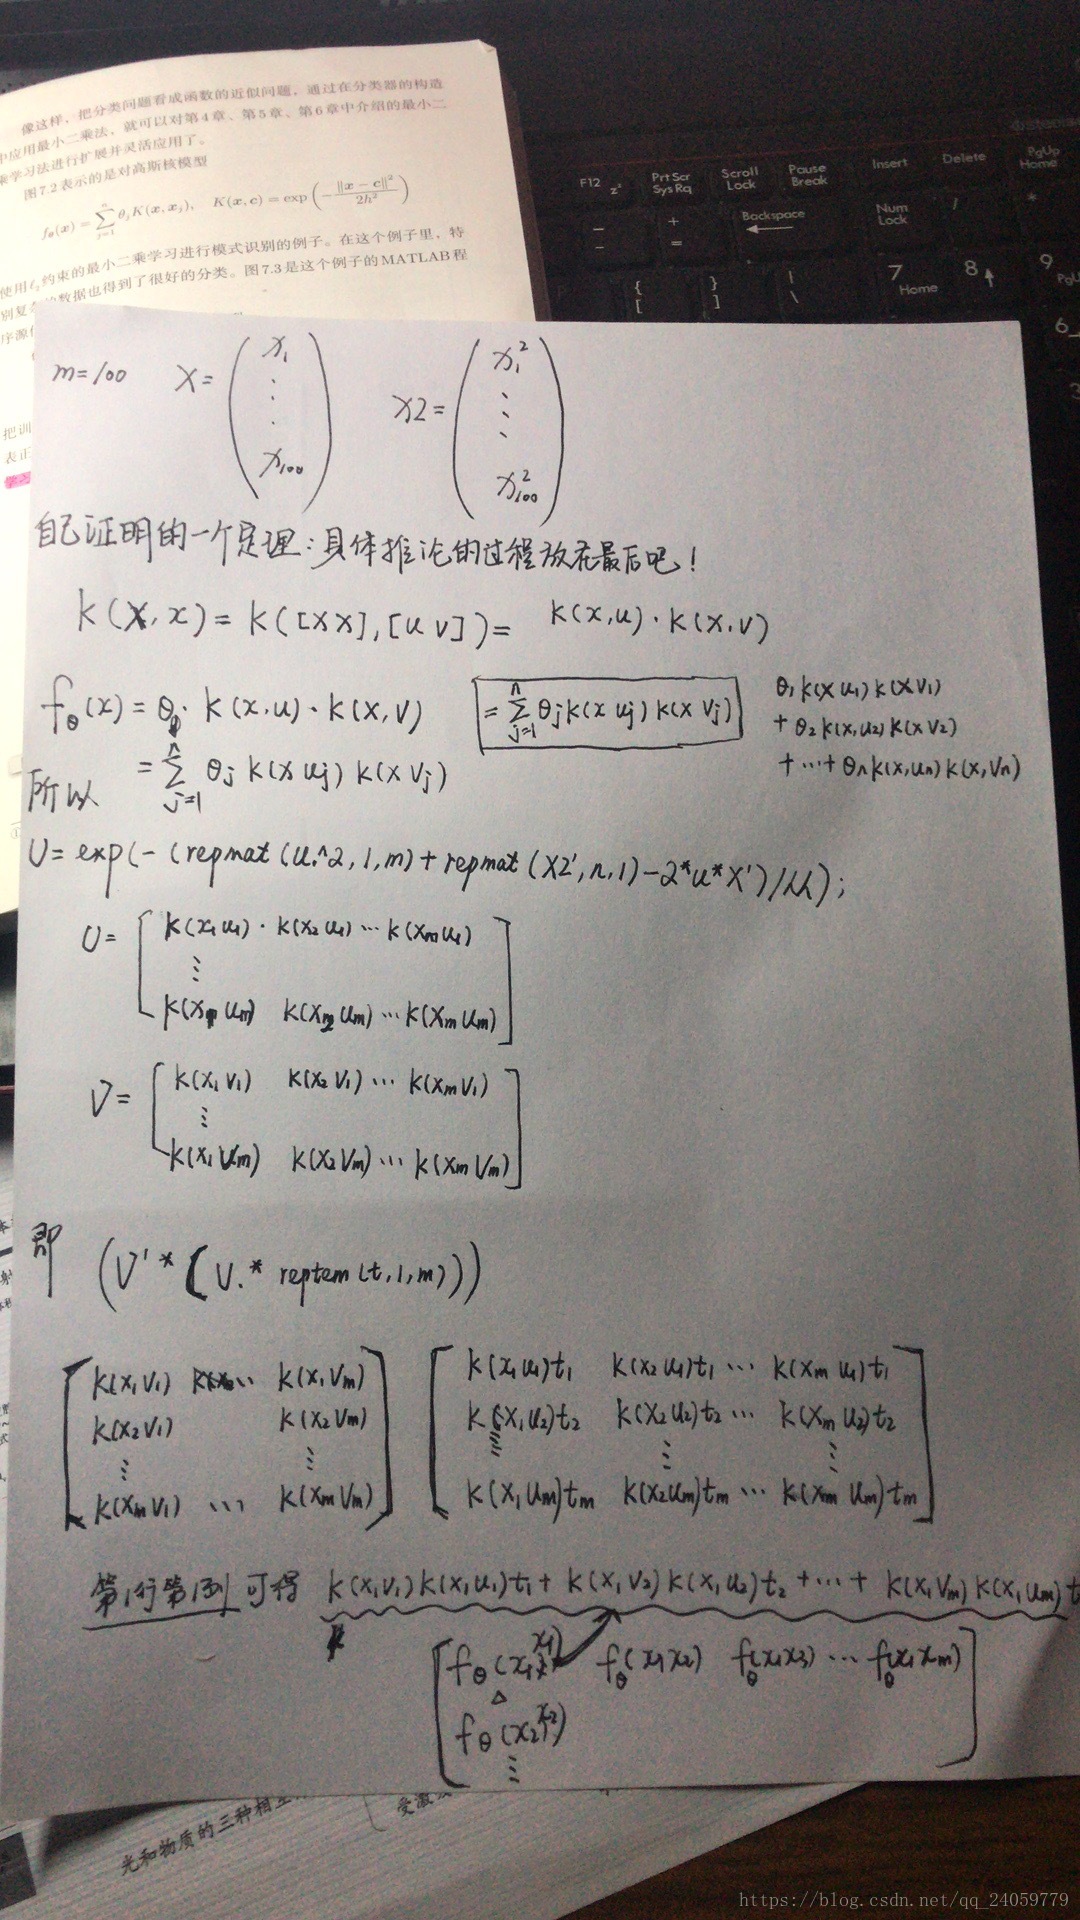 像这样，把分类问题看成函数的近似问题，通过在分类器的构造
中应用最小二乘法，就可以对第4章、第5章、第6章中介绍的最小二
乘学习法进行扩展并灵活应用了。
图7.2表示的是对高斯核模型
f_θ(x) = Σ_{j=1}^{n} θ_j K(x, x_j), K(x, c) = exp(-‖x - c‖² / 2h²)
使用ℓ₂约束的最小二乘学习进行模式识别的例子。在这个例子里，特
别复杂的数据也得到了很好的分类。图7.3是这个例子的MATLAB程
序源
把训
表正
学习
F12
Prt Scr
Sys Rq
Scroll
Lock
Pause
Break
Insert
Delete
PgUp
Home
Backspace
Num
Lock
7
Home
8
9
PgU
6
3
m=100 X= (x₁ ⋮ x₁₀₀) X2= (x₁² ⋮ x₁₀₀²)
自己证明的一个定理：具体推论的过程放在最后吧！
K(X, x) = K([X X], [u v]) = K(x,u) · K(X,v)
f_θ(x) = θ · K(x,u) · K(X,V)
= Σ_{j=1}^{n} θj K(x uj) K(x Vj)
= Σ_{j=1}^{n} θj K(X uj) K(X Vj)
θ₁ K(X u₁) K(X V₁)
+ θ₂ K(X, u₂) K(X V₂)
+ ⋯ + θn K(X, un) K(X, Vn)
所以
U = exp(-(repmat(u.^2,1,m)+repmat(X2',n,1)-2*u*X')/hh);
U= [ K(x₁ u₁) · K(x₂ u₁) ⋯ K(xm u₁)
⋮
K(x um) K(x₂ um) ⋯ K(xm um) ]
V= [ K(x₁ v₁) K(x₂ v₁) ⋯ K(xm v₁)
⋮
K(x₁ vm) K(x₂ vm) ⋯ K(xm vm) ]
即 (V' * (U.* reptem(t,1,m)))
[ K(x₁ v₁) ⋯ K(x₁ vm)
K(x₂ v₁) K(x₂ vm)
⋮ ⋮
K(xm v₁) ⋯ K(xm vm) ]
[ K(x₁ u₁)t₁ K(x₂ u₁)t₁ ⋯ K(xm u₁)t₁
K(x₁ u₂)t₂ K(x₂ u₂)t₂ ⋯ K(xm u₂)t₂
⋮ ⋮ ⋮
K(x₁ um)tm K(x₂ um)tm ⋯ K(xm um)tm ]
第1行第1列 可得 K(x₁v₁)K(x₁u₁)t₁ + K(x₁v₂)K(x₁u₂)t₂ + ⋯ + K(x₁vm)K(x₁um)t
[ fθ(x₁ x₁) fθ(x₁x₂) fθ(x₁x₃) ⋯ fθ(x₁xm)
fθ(x₂ x₂)
⋮ ]
光和物质的三种相互
受激
https://blog.csdn.net/qq_24059779